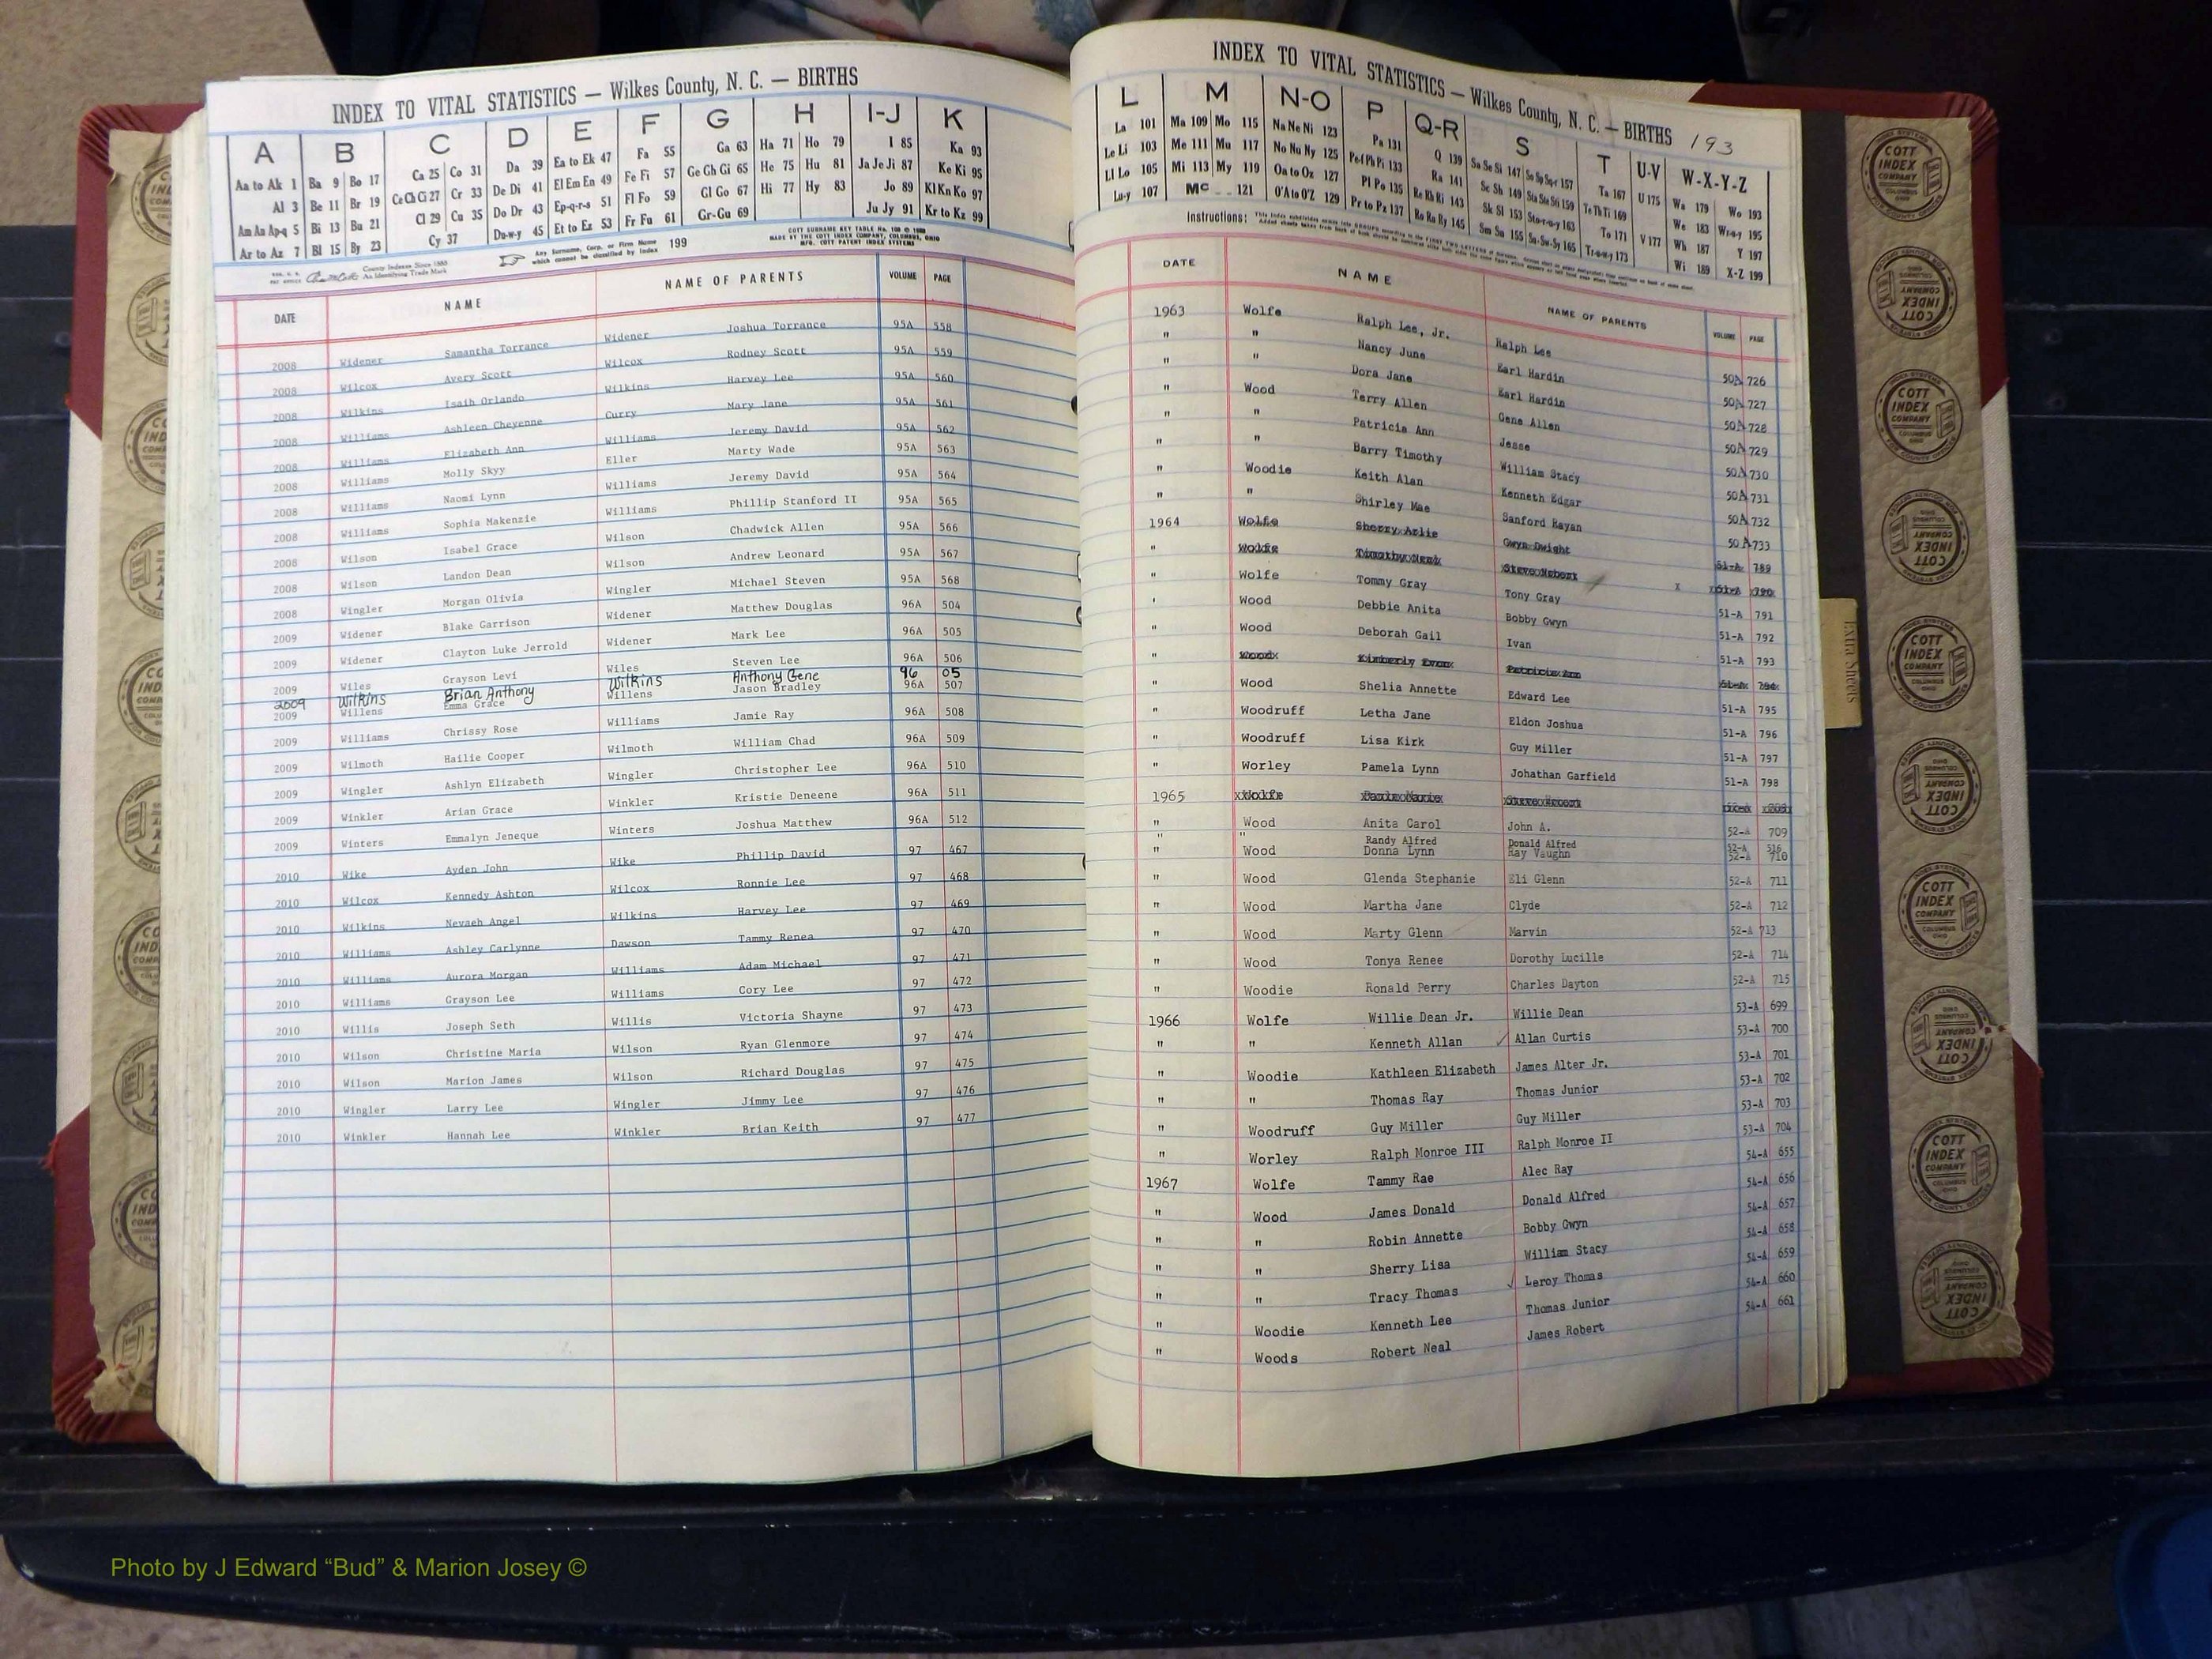 INDEX TO VITAL STATISTICS — Wilkes County, N. C. — BIRTHS
A B C D E F G H I-J K
Aa to Ak 1 Ba 9 Bo 17 Ca 25 Co 31 Da 39 Ea to Ek 47 Fa 55 Ga 63 Ha 71 Ho 79 I 85 Ka 93
Al 3 Be 11 Br 19 Ce Ch Ci 27 Cr 33 De Di 41 El Em En 49 Fe Fi 57 Ge Gh Gi 65 He 75 Hu 81 Ja Je Ji 87 Ke Ki 95
Am An Ap-q 5 Bi 13 Bu 21 Cl 29 Cu 35 Do Dr 43 Ep-q-r-s 51 Fl Fo 59 Gl Go 67 Hi 77 Hy 83 Jo 89 Kl Kn Ko 97
Ar to Az 7 Bl 15 By 23 Cy 37 Du-w-y 45 Et to Ez 53 Fr Fu 61 Gr-Gu 69 Ju Jy 91 Kr to Kz 99
County Indexes Since 1888
An Identifying Trade Mark
Any Surname, Corp. or Firm Name
which cannot be classified by Index 199
MADE BY THE COTT INDEX COMPANY, COLUMBUS, OHIO
MFG. COTT PATENT INDEX SYSTEMS
DATE NAME NAME OF PARENTS VOLUME PAGE
2008 Widener Samantha Torrance Widener Joshua Torrance 95A 558
2008 Wilcox Avery Scott Wilcox Rodney Scott 95A 559
2008 Wilkins Isaih Orlando Wilkins Harvey Lee 95A 560
2008 Williams Ashleen Cheyenne Curry Mary Jane 95A 561
2008 Williams Elizabeth Ann Williams Jeremy David 95A 562
2008 Williams Molly Skyy Eller Marty Wade 95A 563
2008 Williams Naomi Lynn Williams Jeremy David 95A 564
2008 Williams Sophia Makenzie Williams Phillip Stanford II 95A 565
2008 Wilson Isabel Grace Wilson Chadwick Allen 95A 566
2008 Wilson Landon Dean Wilson Andrew Leonard 95A 567
2008 Wingler Morgan Olivia Wingler Michael Steven 95A 568
2009 Widener Blake Garrison Widener Matthew Douglas 96A 504
2009 Widener Clayton Luke Jerrold Widener Mark Lee 96A 505
2009 Wiles Grayson Levi Wiles Steven Lee 96A 506
2009 Wilkins Brian Anthony Wilkins Anthony Gene 96 05
2009 Willens Emma Grace Willens Jason Bradley 96A 507
2009 Williams Chrissy Rose Williams Jamie Ray 96A 508
2009 Wilmoth Hailie Cooper Wilmoth William Chad 96A 509
2009 Wingler Ashlyn Elizabeth Wingler Christopher Lee 96A 510
2009 Winkler Arian Grace Winkler Kristie Deneene 96A 511
2009 Winters Emmalyn Jeneque Winters Joshua Matthew 96A 512
2010 Wike Ayden John Wike Phillip David 97 467
2010 Wilcox Kennedy Ashton Wilcox Ronnie Lee 97 468
2010 Wilkins Nevaeh Angel Wilkins Harvey Lee 97 469
2010 Williams Ashley Carlynne Dawson Tammy Renea 97 470
2010 Williams Aurora Morgan Williams Adam Michael 97 471
2010 Williams Grayson Lee Williams Cory Lee 97 472
2010 Willis Joseph Seth Willis Victoria Shayne 97 473
2010 Wilson Christine Maria Wilson Ryan Glenmore 97 474
2010 Wilson Marion James Wilson Richard Douglas 97 475
2010 Wingler Larry Lee Wingler Jimmy Lee 97 476
2010 Winkler Hannah Lee Winkler Brian Keith 97 477
INDEX TO VITAL STATISTICS — Wilkes County, N. C. — BIRTHS 193
L M N-O P Q-R S T U-V W-X-Y-Z
La 101 Ma 109 Mo 115 Na Ne Ni 123 Pa 131 Q 139 Sa Sc Si 147 So Sp Sq-r 157 Ta 167 U 175 Wa 179 Wo 193
Le Li 103 Me 111 Mu 117 No Nu Ny 125 Pe-f Ph Pi 133 Ra 141 Se Sh 149 Sta Ste Sti 159 Te Th Ti 169 We 183 Wr-u-y 195
Ll Lo 105 Mi 113 My 119 Oa to Oz 127 Pl Po 135 Re Rh Ri 143 Sk Sl 153 Sto-r-u-y 163 To 171 V 177 Wh 187 Y 197
Lu-y 107 Mc 121 O'A to O'Z 129 Pr to Pz 137 Ro Ru Ry 145 Sm Sn 155 Su-Sw-Sy 165 Tr-u-w-y 173 Wi 189 X-Z 199
Instructions:
DATE NAME NAME OF PARENTS VOLUME PAGE
1963 Wolfe Ralph Lee, Jr. Ralph Lee 50A 726
" " Nancy June Earl Hardin 50A 727
" " Dora Jane Earl Hardin 50A 728
" Wood Terry Allen Gene Allen 50A 729
" " Patricia Ann Jesse 50A 730
" " Barry Timothy William Stacy 50A 731
" Woodie Keith Alan Kenneth Edgar 50A 732
" " Shirley Mae Sanford Rayan 50 A 733
1964 Wolfe Sherry Arlie Gwyn Dwight 51-A 789
" Wolfe 51-A 790
" Wolfe Tommy Gray Tony Gray 51-A 791
" Wood Debbie Anita Bobby Gwyn 51-A 792
" Wood Deborah Gail Ivan 51-A 793
" Wood Kimberly Patricia Ann 51-A 794
" Wood Shelia Annette Edward Lee 51-A 795
" Woodruff Letha Jane Eldon Joshua 51-A 796
" Woodruff Lisa Kirk Guy Miller 51-A 797
" Worley Pamela Lynn Johathan Garfield 51-A 798
1965 Wolfe
" Wood Anita Carol John A. 52-A 709
" " Randy Alfred Donald Alfred 52-A 516
" Wood Donna Lynn Ray Vaughn 52-A 710
" Wood Glenda Stephanie Eli Glenn 52-A 711
" Wood Martha Jane Clyde 52-A 712
" Wood Marty Glenn Marvin 52-A 713
" Wood Tonya Renee Dorothy Lucille 52-A 714
" Woodie Ronald Perry Charles Dayton 52-A 715
1966 Wolfe Willie Dean Jr. Willie Dean 53-A 699
" " Kenneth Allan ✓ Allan Curtis 53-A 700
" Woodie Kathleen Elizabeth James Alter Jr. 53-A 701
" " Thomas Ray Thomas Junior 53-A 702
" Woodruff Guy Miller Guy Miller 53-A 703
" Worley Ralph Monroe III Ralph Monroe II 53-A 704
1967 Wolfe Tammy Rae Alec Ray 54-A 655
" Wood James Donald Donald Alfred 54-A 656
" " Robin Annette Bobby Gwyn 54-A 657
" " Sherry Lisa William Stacy 54-A 658
" " Tracy Thomas ✓ Leroy Thomas 54-A 659
" Woodie Kenneth Lee Thomas Junior 54-A 660
" Woods Robert Neal James Robert 54-A 661
Extra Sheets
COTT INDEX COMPANY
COLUMBUS OHIO
Photo by J Edward “Bud” & Marion Josey ©